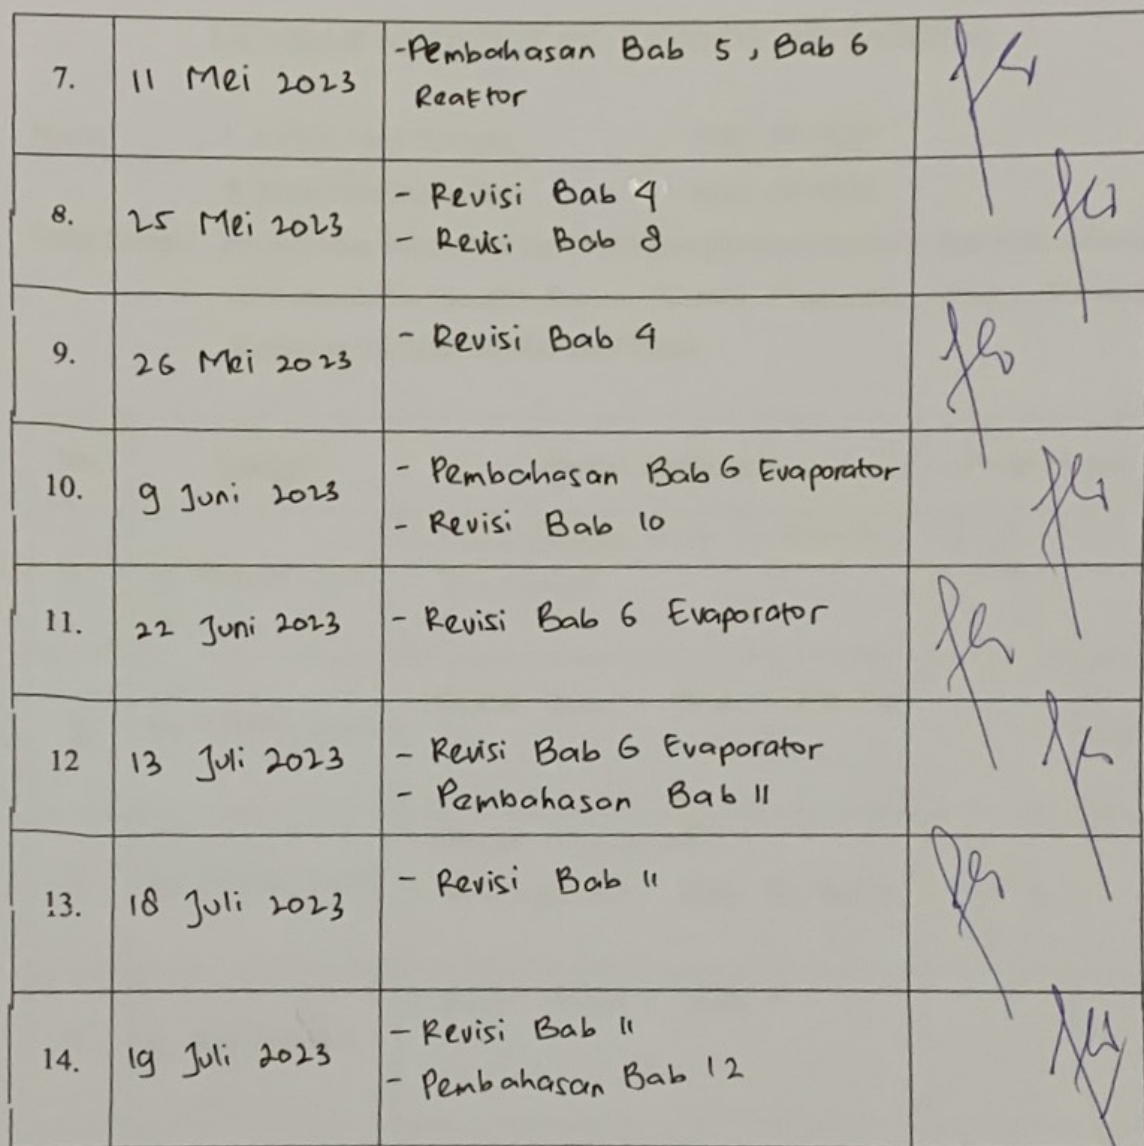 7. 11 Mei 2023 -Pembahasan Bab 5, Bab 6
Reaktor
8. 25 Mei 2023 - Revisi Bab 4
- Revisi Bab 8
9. 26 Mei 2023 - Revisi Bab 4
10. 9 Juni 2023 - Pembahasan Bab 6 Evaporator
- Revisi Bab 10
11. 22 Juni 2023 - Revisi Bab 6 Evaporator
12 13 Juli 2023 - Revisi Bab 6 Evaporator
- Pembahasan Bab 11
13. 18 Juli 2023 - Revisi Bab 11
14. 19 Juli 2023 - Revisi Bab 11
- Pembahasan Bab 12